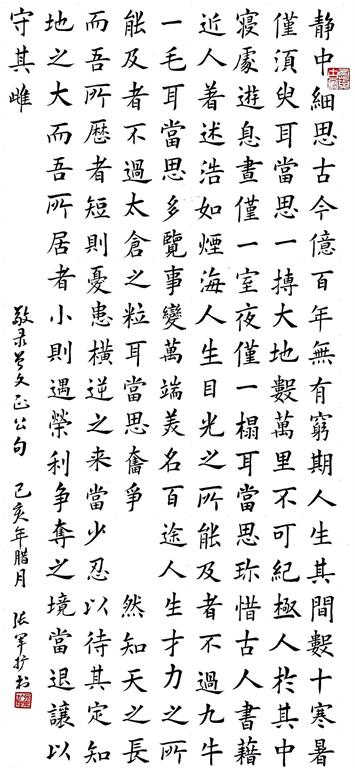 静中細思古今億百年無有窮期人生其間數十寒暑
僅須臾耳當思一搏大地數萬里不可紀極人於其中
寢處遊息晝僅一室夜僅一榻耳當思珎惜古人書藉
近人著述浩如煙海人生目光之所能及者不過九牛
一毛耳當思多覽事變萬端美名百途人生才力之所
能及者不過太倉之粒耳當思奮爭 然知天之長
而吾所歷者短則憂患橫逆之来當少忍以待其定知
地之大而吾所居者小則遇榮利争奪之境當退讓以
守其雌
敬录曾文正公句 己亥年腊月 张军扩书